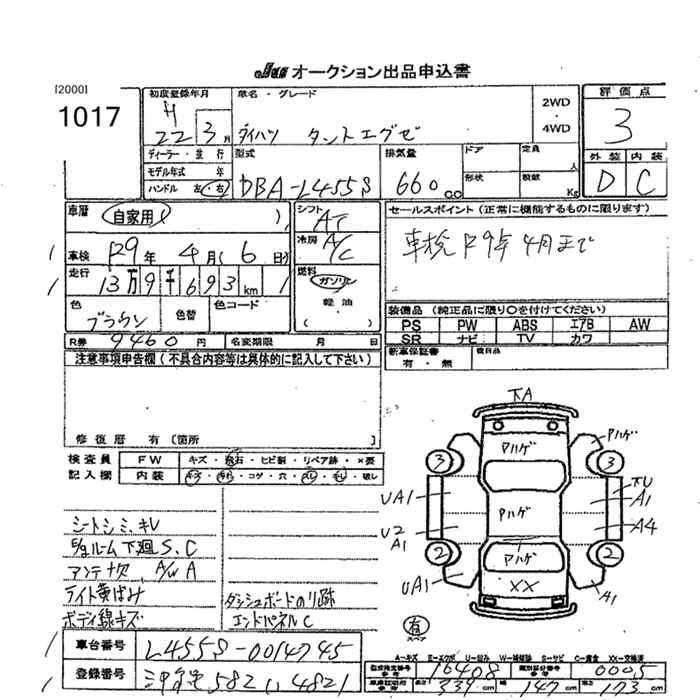 JU オークション出品申込書
[2000]
1017
初度登録年月
H
22 3月
車名・グレード
ダイハツ タントエグゼ
2WD
・
4WD
評価点
3
ディーラー・並行
モデル年式 年
ハンドル 左・右
型式
DBA-L455S
排気量
660 CC
ドア
形状
定員
人
積載
Kg
外装 内装
D C
車歴
自家用
シフト
AT
車検 R9年 4月(6日)
冷房
A/C
走行
13万9千693km
燃料
ガソリン
軽油
( )
色
ブラウン
色替
色コード
R券 9460円
名変期限 月 日
セールスポイント(正常に機能するものに限ります)
車検R9年4月まで
装備品(純正品に限り○を付けてください)
PS PW ABS エアB AW
SR ナビ TV カワ
新車保証書
有・無
後日品
注意事項申告欄(不具合内容等は具体的に記入して下さい)
修復歴 有[箇所 ]
検査員
記入欄
FW キズ・飛石・ヒビ割・リペア跡・×要
内装 キズ・汚れ・コゲ・穴・スレ・キレ・破レ
シートシミ、キレ
E/gルーム下廻S、C
アンテナ欠、A/W A
ライト黄ばみ
ボディ線キズ
ダッシュボードのり跡
エンドパネルC
下A
Pハゲ
Pハゲ
3 3
UA1
下U
A1
Pハゲ
U2
A1
A4
2 2
Pハゲ
UA1
XX
A1
有
スペア
A=キズ E=エクボ U=凹み W=補修跡 S=サビ C=腐食 XX=交換済
車台番号 L455S-0014745
登録番号 582 4821
型式指定番号
参考
16408
類別区分番号
参考
0005
長さ 339cm 幅 147cm 高さ 173cm